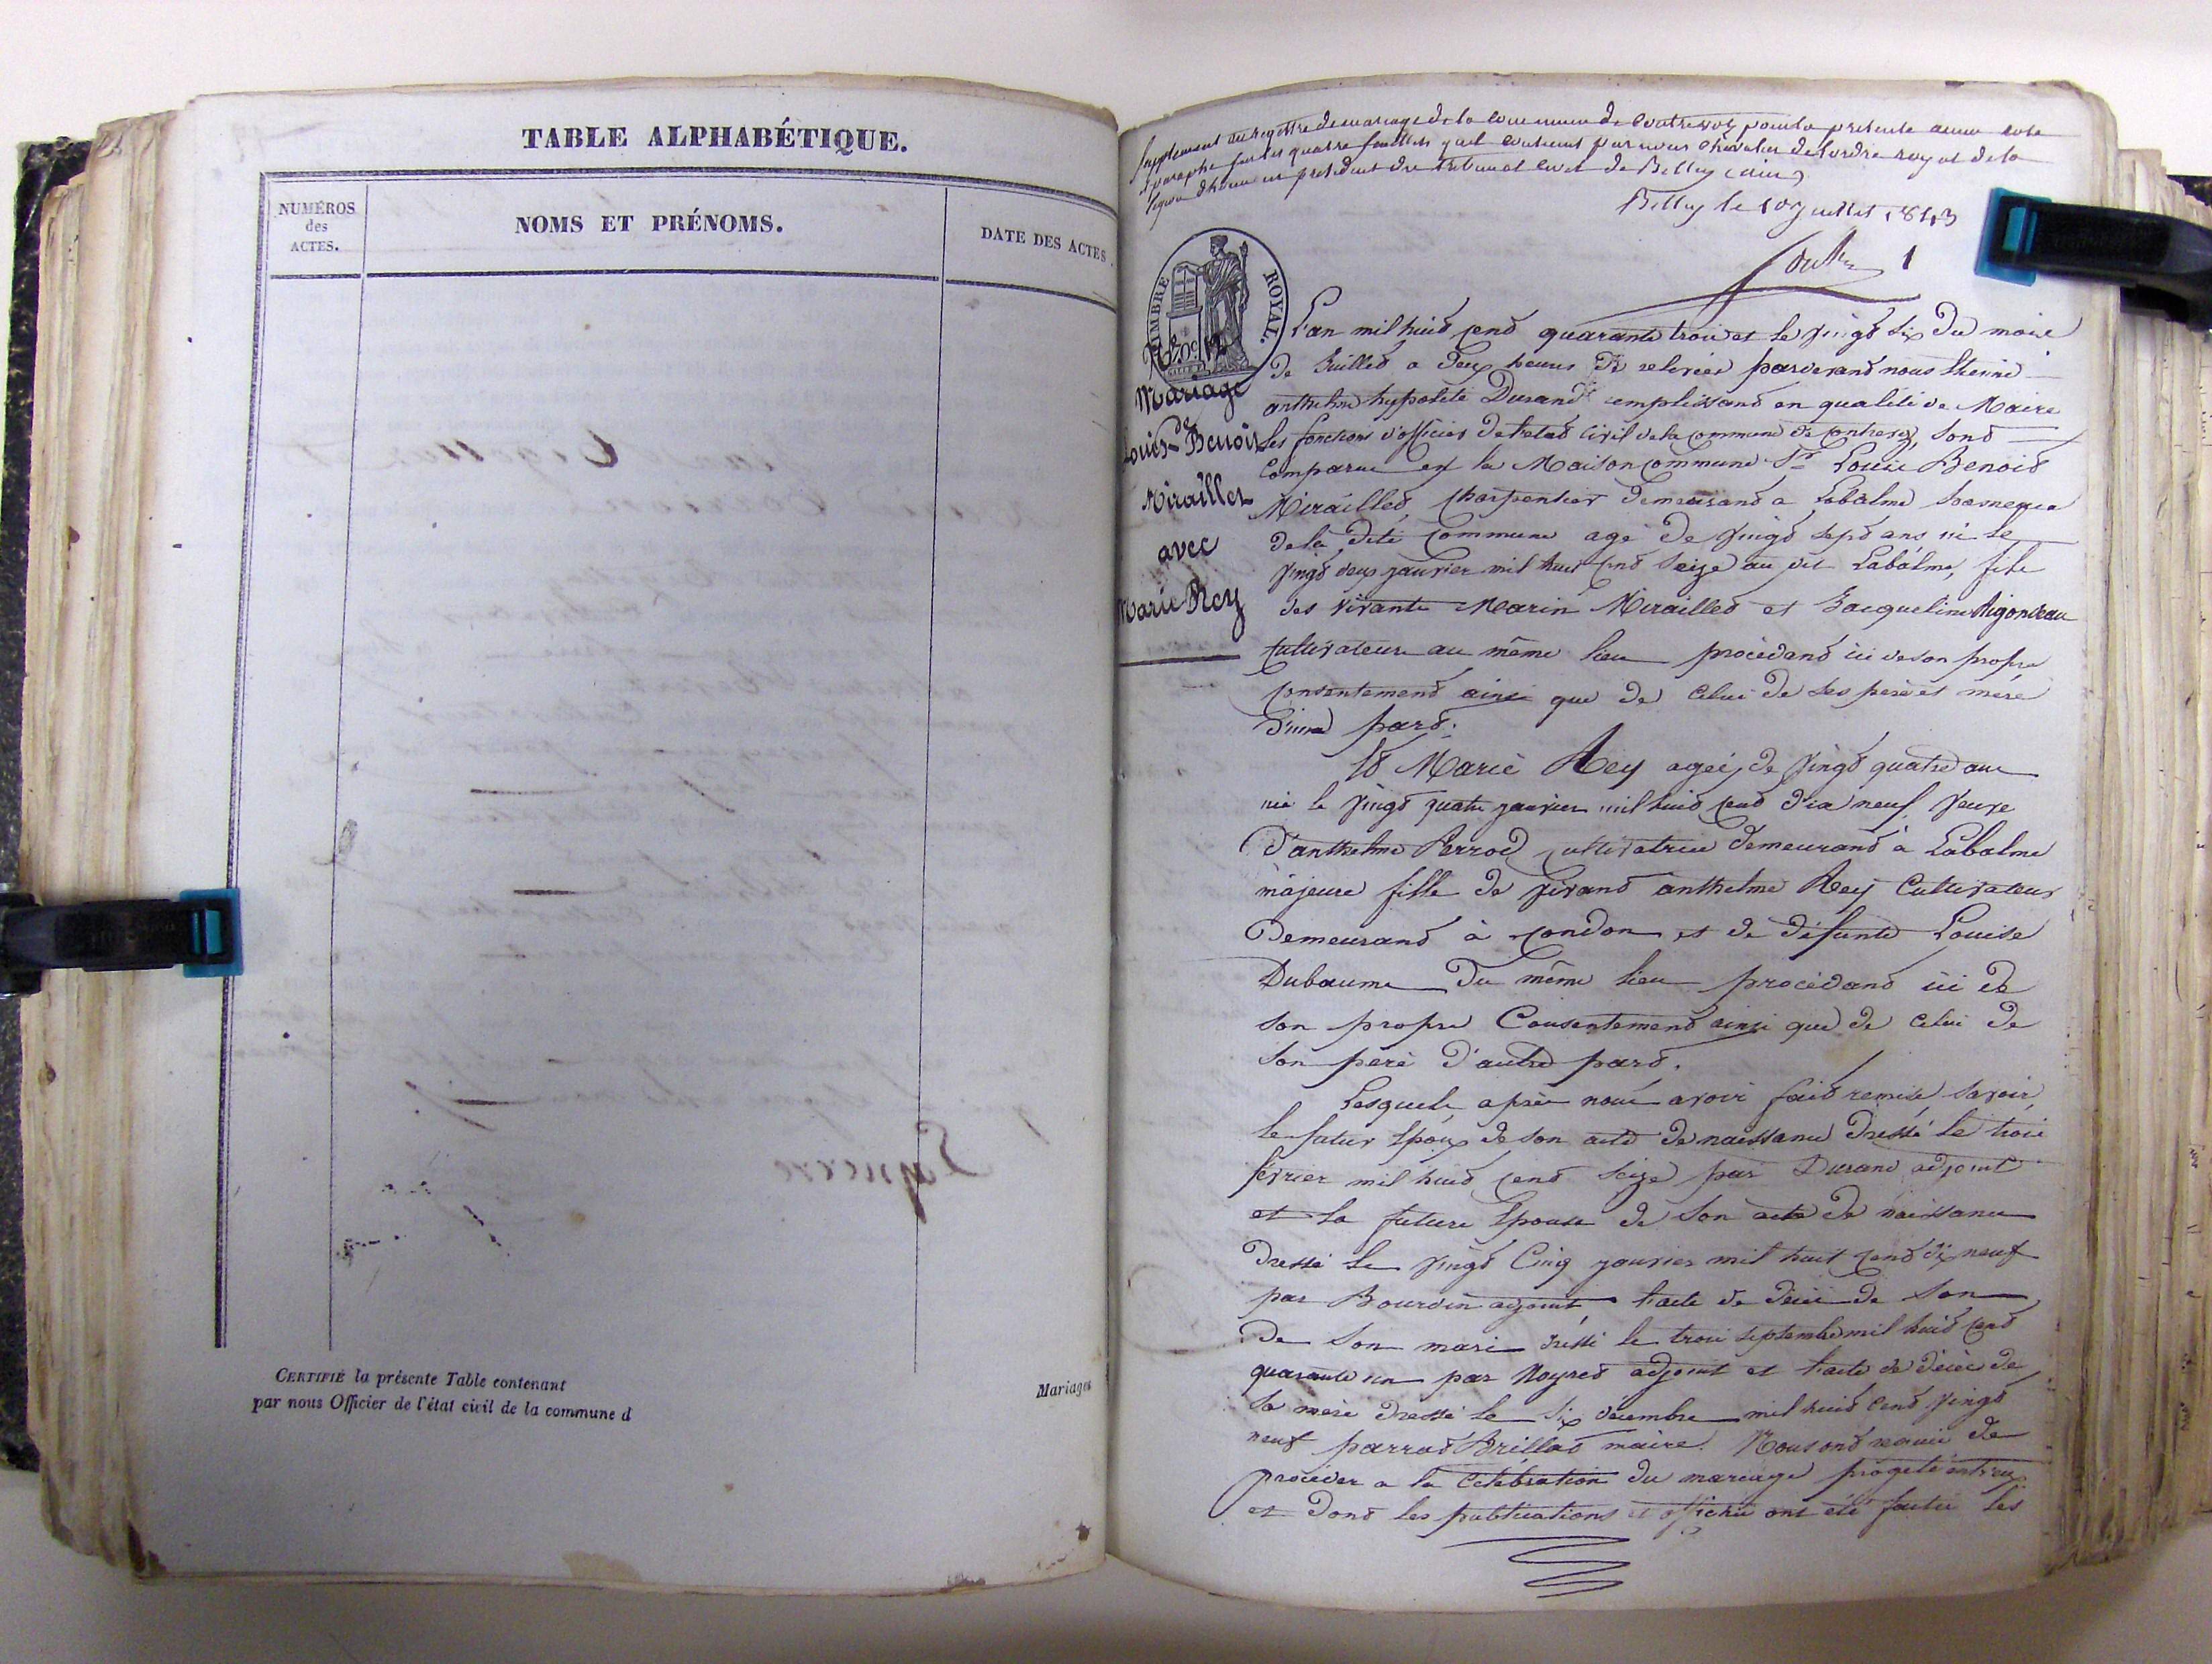 TABLE ALPHABÉTIQUE.
NUMÉROS
des
ACTES.
NOMS ET PRÉNOMS.
DATE DES ACTES.
CERTIFIÉ la présente Table contenant
par nous Officier de l'état civil de la commune d
Mariages
Supplement au registre de mariage de la commune de Contrevoz pour la presente annee cote
et paraphe sur les quatre feuillets qu'il contient par nous chevalier de l'ordre royal de la
legion dhonneur president du tribunal civil de Belley (ain)
Belley le 10 juillet 1843
1
TIMBRE ROYAL.
Mariage
de
Louis Benoit
Miraillet
avec
Marie Rey
L'an mil huit cent quarante trois et le vingt six du mois
de Juillet a deux heures de relevée pardevant nous
anthelme hypolite Durand remplissant en qualité de Maire
les fonctions d'officier de l'etat civil de la commune de Contrevoz, sont
comparu en la Maison commune Sr. Louis Benoit
Miraillet, charpentier demeurant a Labalme
de la dite commune agé de vingt sept ans né le
vingt deux janvier mil huit cent seize au dit Labalme, fils
des vivants Marin Miraillet et Jacqueline Rigondeau
cultivateurs au même lieu procédant ici de son propre
consentement ainsi que de celui de ses père et mère
d'une part.
Et Marie Rey agée de vingt quatre ans
née le vingt quatre janvier mil huit cent dix neuf veuve
d'anthelme Perrod cultivatrice demeurant à Labalme
majeure fille de vivant anthelme Rey Cultivateur
Demeurant à Condon et de défunte Louise
Dubaume du même lieu procédant ici de
son propre Consentement ainsi que de celui de
son père d'autre part.
Lesquels après nous avoir fait remise savoir,
le futur époux de son acte de naissance dressé le trois
février mil huit cent seize par Durand adjoint
et la future épouse de son acte de naissance
dressé le vingt cinq janvier mil huit cent dix neuf
par Bourdin adjoint, l'acte de décès de son
de son mari dressé le trois septembre mil huit cent
quarante un par Noyret adjoint et l'acte de décès de
sa mère dressé le six décembre mil huit cent vingt
neuf Brillat maire. Nous ont requis de
procéder a la célébration du mariage projeté entr'eux
et dont les publications et affiches ont été faites les